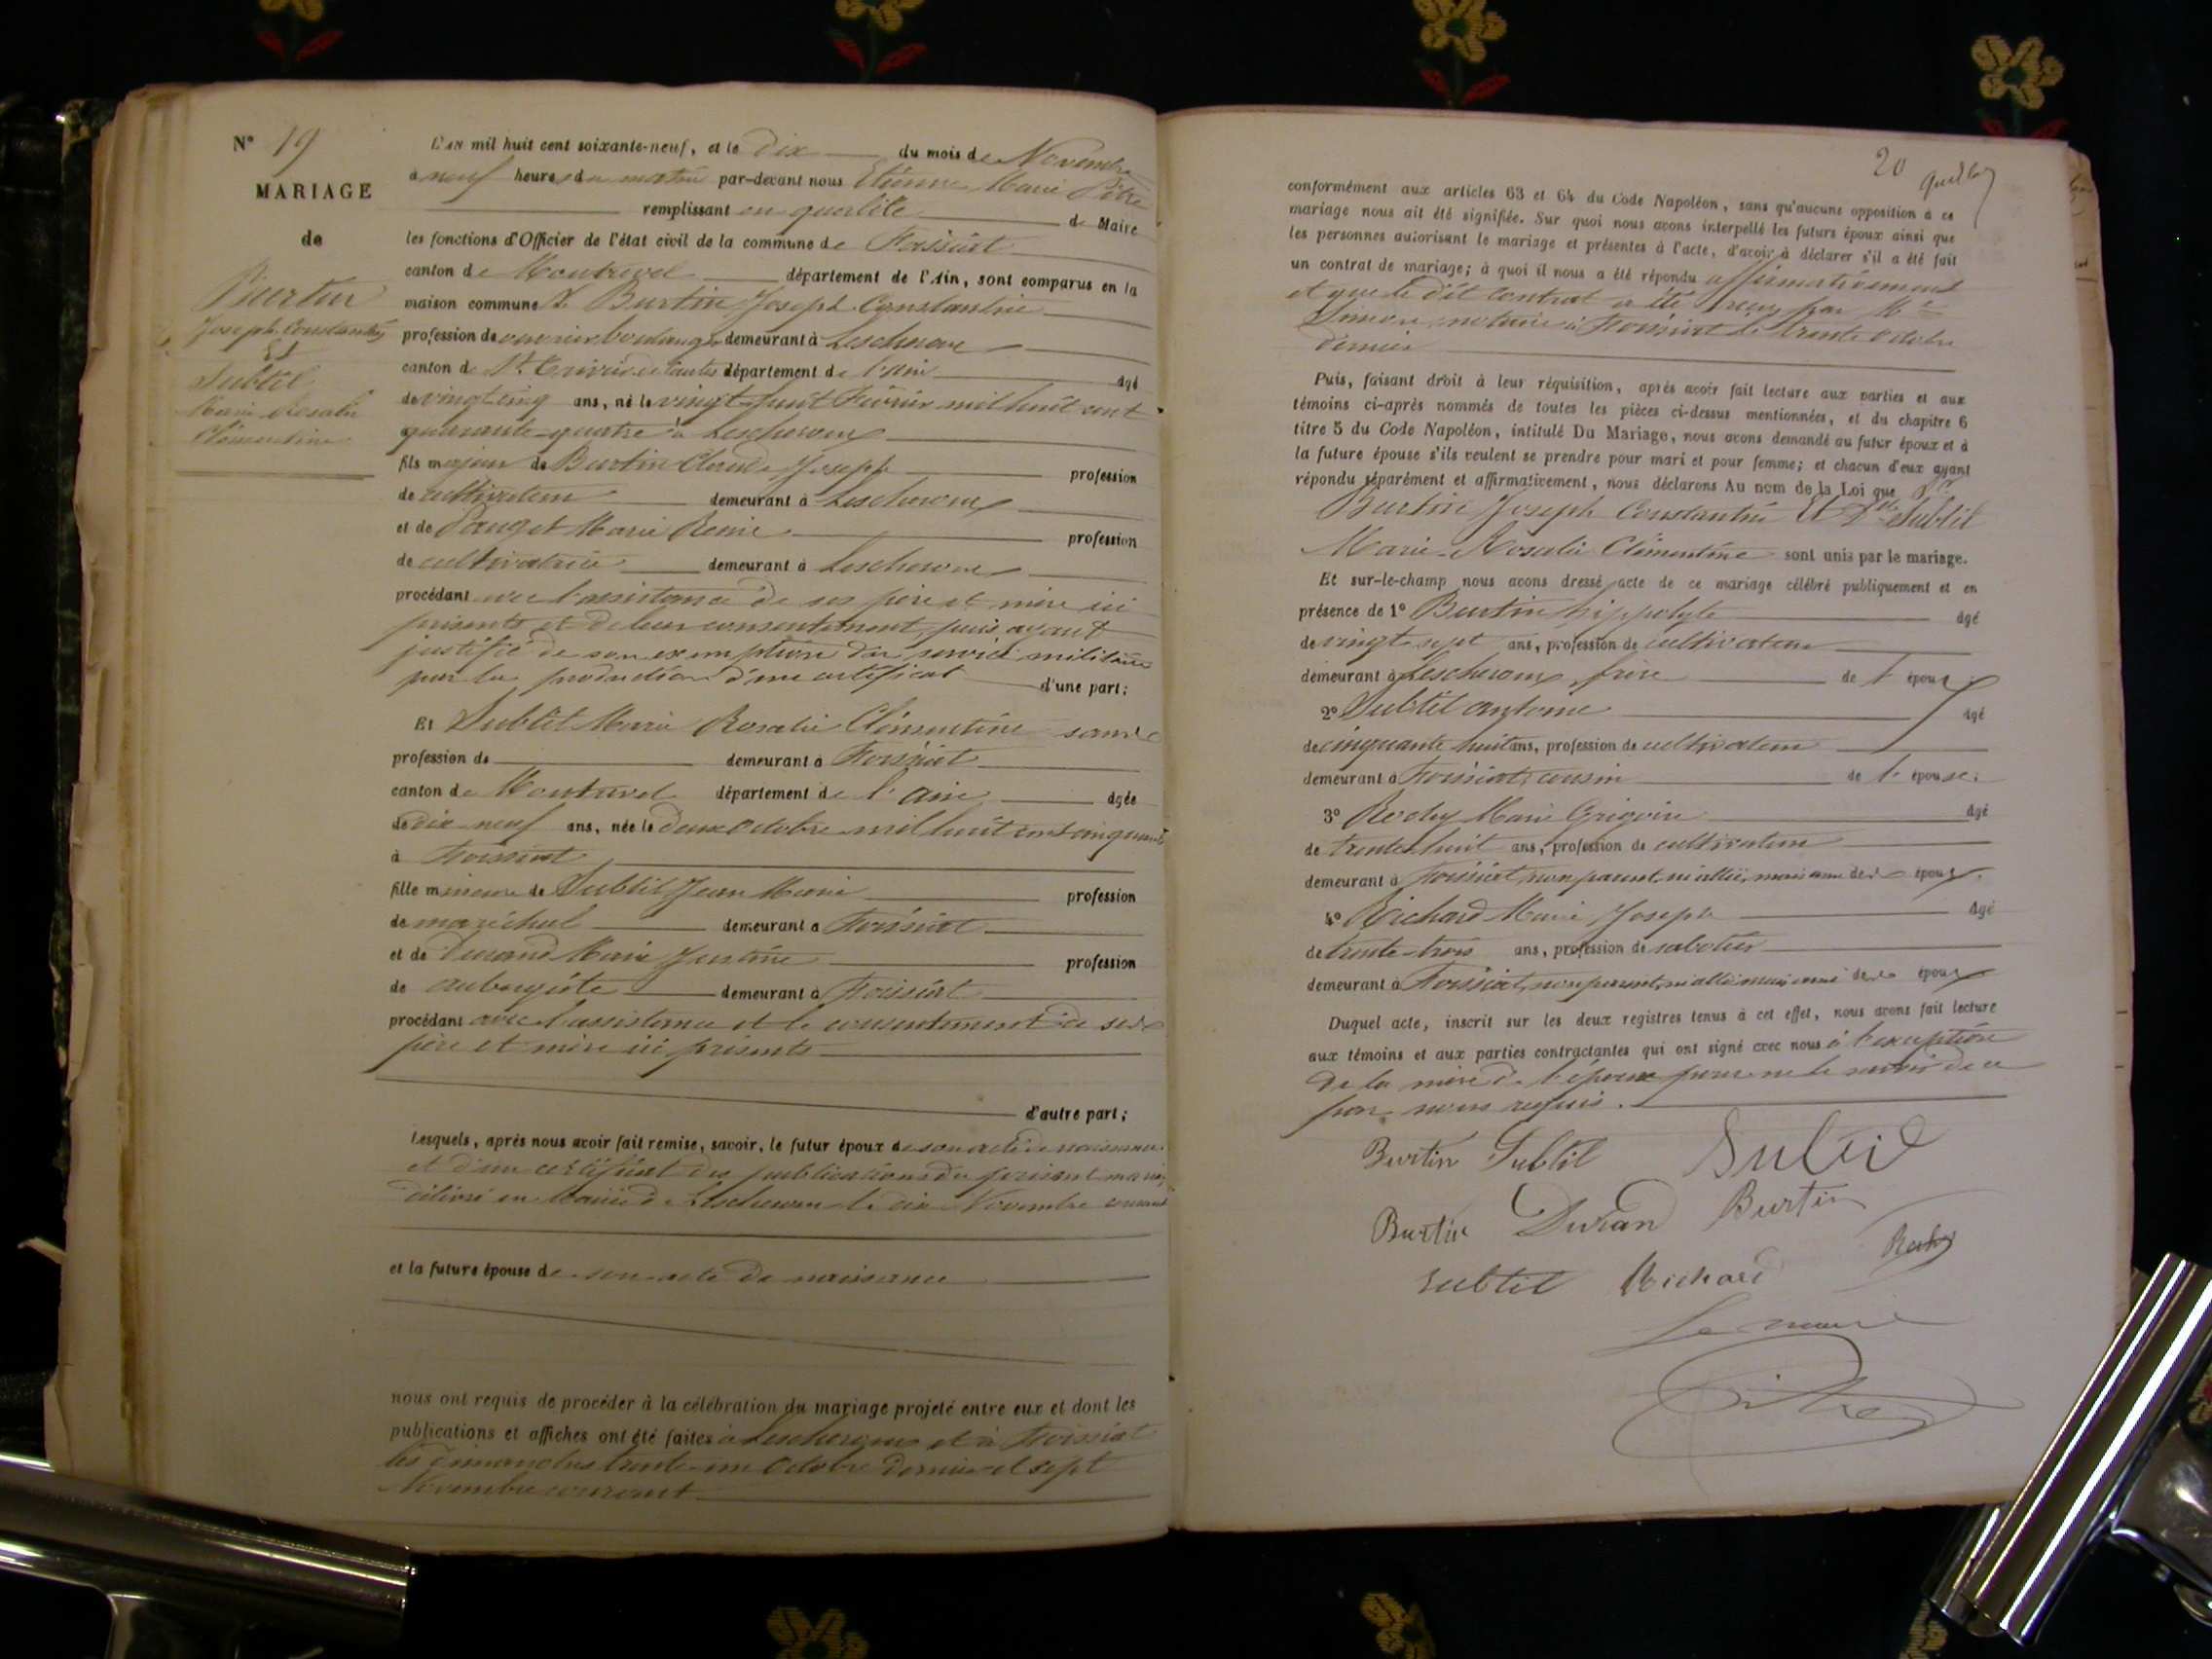 N° 19
MARIAGE
de
Burtin
Joseph Constantin
Et
Subtil
Marie Rosalie
Clémentine
L'AN mil huit cent soixante-neuf, et le Dix du mois de Novembre
à neuf heures du matin par-devant nous Etienne Marie Pitre
remplissant en qualité de Maire
les fonctions d'Officier de l'état civil de la commune de Foissiat
canton de Montrevel département de l'Ain, sont comparus en la
maison commune Sr Burtin Joseph Constantin
profession de ouvrier boulanger demeurant à Lescheroux
canton de St Trivier de Courtes département de l'ain âgé
de vingt cinq ans, né le vingt-huit Février mil huit cent
quarante-quatre à Lescheroux
fils majeur de Burtin Claude Joseph profession
de cultivateur demeurant à Lescheroux
et de Pauget Marie Reine profession
de cultivatrice demeurant à Lescheroux
procédant avec l'assistance de ses père et mère ici
présents et de leur consentement, puis ayant
justifié de son exemption du service militaire
par la production d'un certificat d'une part;
Et Subtil Marie Rosalie Clémentine sans
profession de demeurant à Foissiat
canton de Montrevel département de l'Ain âgée
de dix-neuf ans, née le deux Octobre mil huit cent cinquante
à Foissiat
fille mineure de Subtil Jean Marie profession
de maréchal demeurant à Foissiat
et de Durand Marie Justine profession
de aubergiste demeurant à Foissiat
procédant avec l'assistance et le consentement de ses
père et mère ici présents
d'autre part;
Lesquels, après nous avoir fait remise, savoir, le futur époux de son acte de naissance
et d'un certificat des publications du présent mariage
délivré en Mairie de Lescheroux le dix Novembre courant
et la future épouse de son acte de naissance
nous ont requis de procéder à la célébration du mariage projeté entre eux et dont les
publications et affiches ont été faites à Lescheroux et à Foissiat
les dimanches trente-un Octobre dernier et sept
Novembre courant
20
conformément aux articles 63 et 64 du Code Napoléon, sans qu'aucune opposition à ce
mariage nous ait été signifiée. Sur quoi nous avons interpellé les futurs époux ainsi que
les personnes autorisant le mariage et présentes à l'acte, d'avoir à déclarer s'il a été fait
un contrat de mariage; à quoi il nous a été répondu affirmativement
et que le dit contrat a été reçu par Me
notaire à Foissiat le trente Octobre
dernier
Puis, faisant droit à leur réquisition, après avoir fait lecture aux parties et aux
témoins ci-après nommés de toutes les pièces ci-dessus mentionnées, et du chapitre 6
titre 5 du Code Napoléon, intitulé Du Mariage, nous avons demandé au futur époux et à
la future épouse s'ils veulent se prendre pour mari et pour femme; et chacun d'eux ayant
répondu séparément et affirmativement, nous déclarons Au nom de la Loi que Sr
Burtin Joseph Constantin Et Dlle Subtil
Marie Rosalie Clémentine sont unis par le mariage.
Et sur-le-champ nous avons dressé acte de ce mariage célébré publiquement et en
présence de 1° Burtin hippolyte âgé
de vingt sept ans, profession de cultivateur
demeurant à Lescheroux, frère de l' époux;
2° Subtil antoine âgé
de cinquante huit ans, profession de cultivateur
demeurant à Foissiat, cousin de l' épouse;
3° Rochy Marie Grégoire âgé
de trente-huit ans, profession de cultivateur
demeurant à Foissiat, non parent, ni allié, mais ami des époux;
4° Richard Marie Joseph âgé
de trente-trois ans, profession de sabotier
demeurant à Foissiat, non parent, ni allié mais ami des époux
Duquel acte, inscrit sur les deux registres tenus à cet effet, nous avons fait lecture
aux témoins et aux parties contractantes qui ont signé avec nous à l'exception
de la mère de l'époux pour ne le savoir de ce
par nous requis.
Burtin Subtil Subtil
Burtin Durand Burtin
Subtil Richard Rochy
Le maire
Pitre